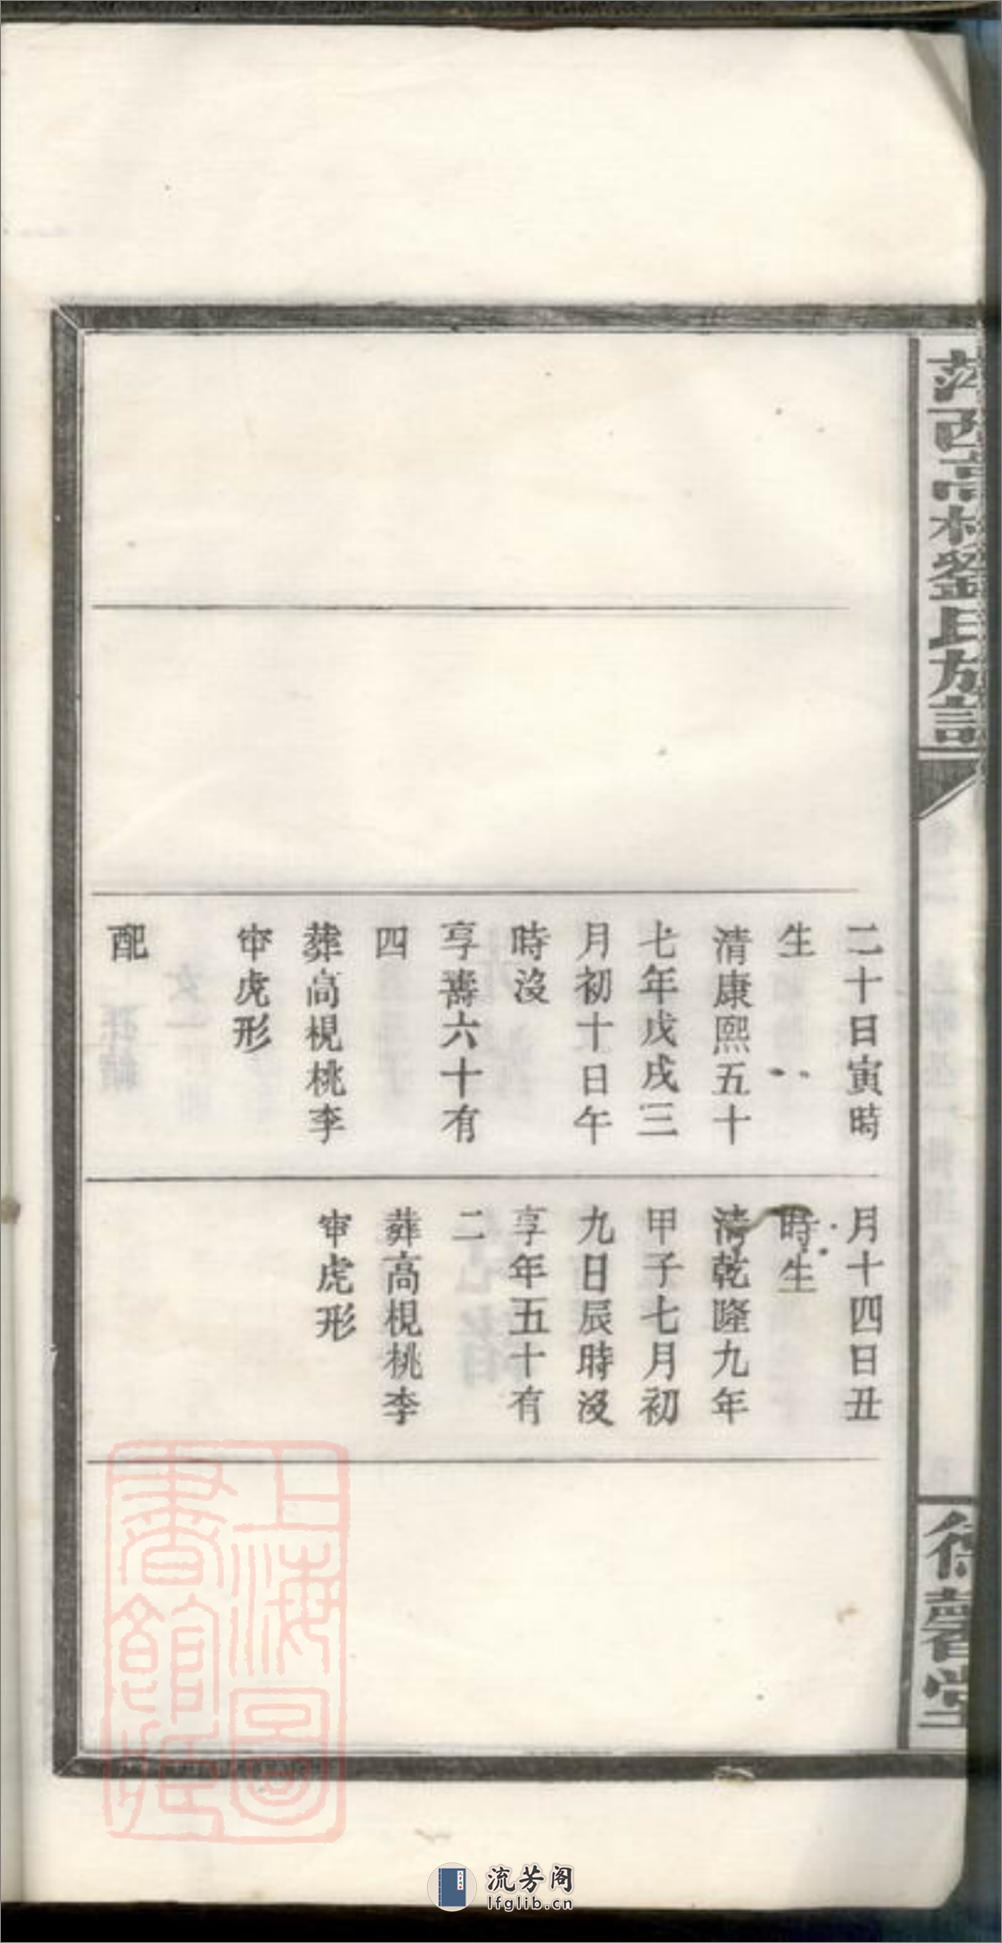 萍西高梘劉氏族譜
二十日寅時
生
清康熙五十
七年戊戌三
月初十日午
時沒
享壽六十有
四
葬高梘桃李
窀虎形
配
月十四日丑
時生
清乾隆九年
甲子七月初
九日辰時沒
享年五十有
二
葬高梘桃李
窀虎形
馨堂
上海圖
書館藏
流芳阁
lfglib.cn